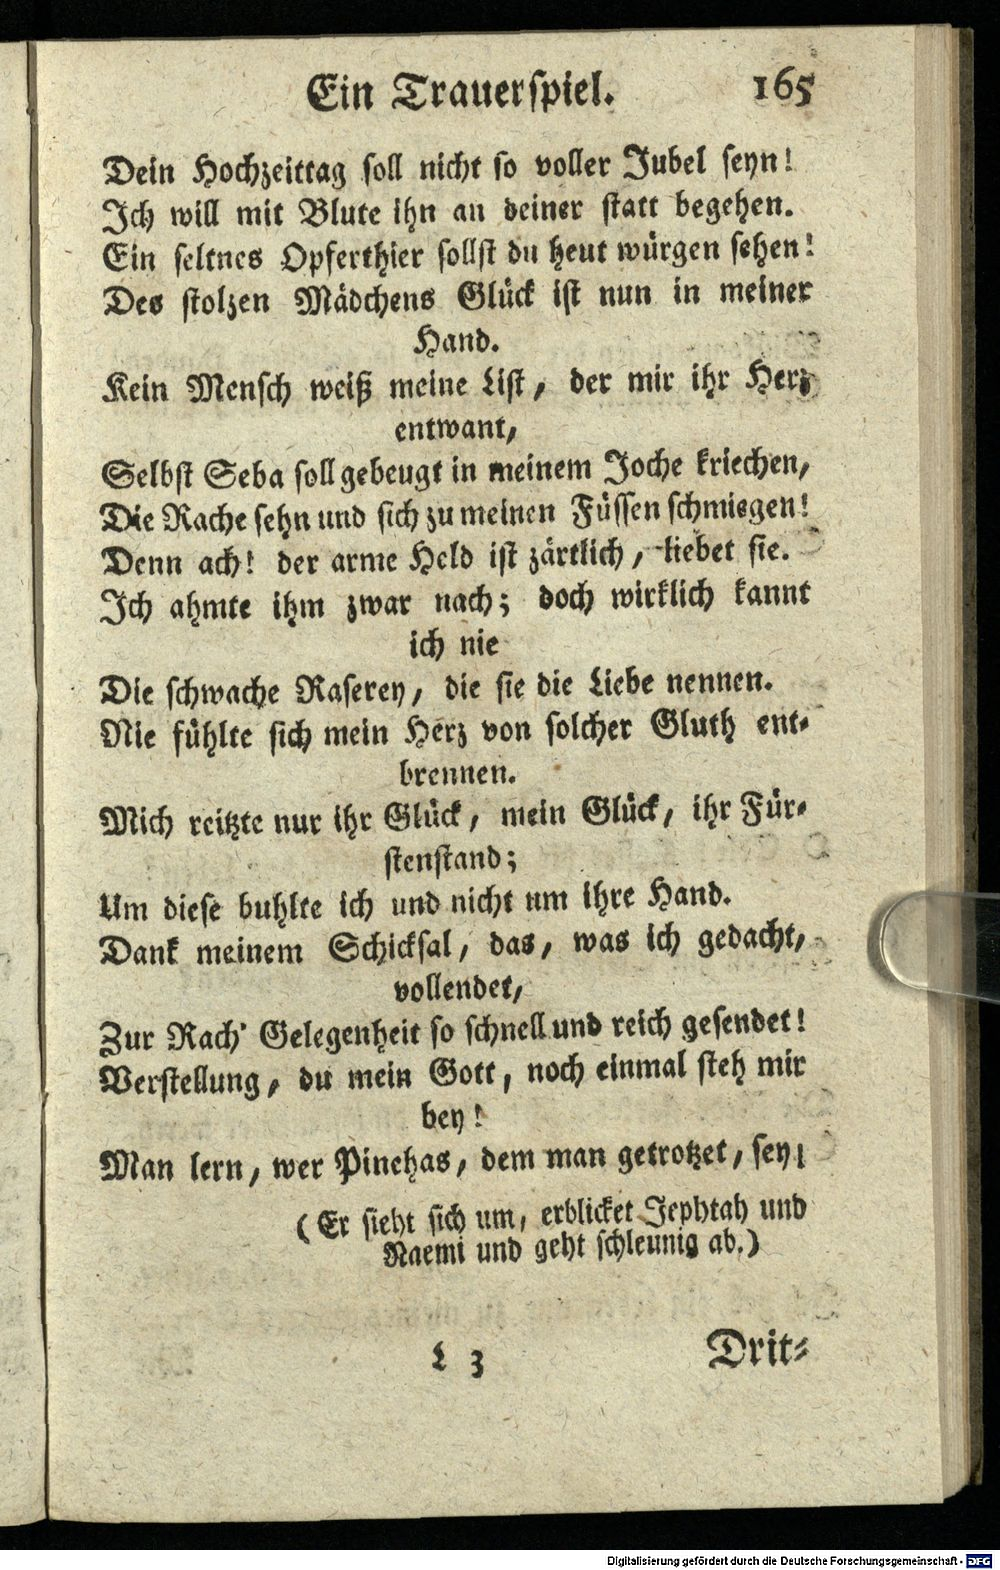 Ein Trauerspiel. 165
Dein Hochzeittag soll nicht so voller Jubel seyn!
Ich will mit Blute ihn an deiner statt begehen.
Ein seltnes Opferthier sollst du heut würgen sehen!
Des stolzen Mädchens Glück ist nun in meiner
Hand.
Kein Mensch weiß meine List, der mir ihr Herz
entwant,
Selbst Seba soll gebeugt in meinem Joche kriechen,
Die Rache sehn und sich zu meinen Füssen schmiegen!
Denn ach! der arme Held ist zärtlich, liebet sie.
Ich ahmte ihm zwar nach; doch wirklich kannt
ich nie
Die schwache Raserey, die sie die Liebe nennen.
Nie fühlte sich mein Herz von solcher Gluth ent-
brennen.
Mich reitzte nur ihr Glück, mein Glück, ihr Für-
stenstand;
Um diese buhlte ich und nicht um ihre Hand.
Dank meinem Schicksal, das, was ich gedacht,
vollendet,
Zur Rach' Gelegenheit so schnell und reich gesendet!
Verstellung, du mein Gott, noch einmal steh mir
bey!
Man lern, wer Pinehas, dem man getrotzet, sey!
(Er sieht sich um, erblicket Jephtah und
Naemi und geht schleunig ab.)
L 3 Drit-
Digitalisierung gefördert durch die Deutsche Forschungsgemeinschaft - DFG